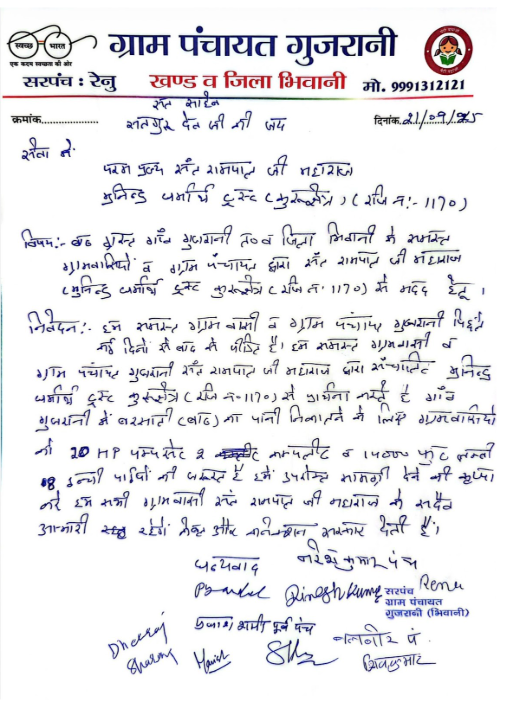 स्वच्छ भारत
एक कदम स्वच्छता की ओर
ग्राम पंचायत गुजरानी
सरपंच : रेनु
खण्ड व जिला भिवानी
मो. 9991312121
सत साहेब
क्रमांक
सतगुरु देव जी की जय
दिनांक 21/09/25
सेवा में
परम पूज्य संत रामपाल जी महाराज
मुनिन्द्र धर्मार्थ ट्रस्ट (कुरूक्षेत्र) (रजि न:- 1170)
विषय:- बाढ ग्रस्त गाँव गुजरानी त० व जिला भिवानी के समस्त
ग्रामवासियों व ग्राम पंचायत द्वारा संत रामपाल जी महाराज
(मुनिन्द्र धर्मार्थ ट्रस्ट कुरूक्षेत्र (रजि न: 1170) से मदद हेतू ।
निवेदन:- हम समस्त ग्रामवासी व ग्राम पंचायत गुजरानी पिछले
कई दिनों से बाढ से पीडित है। हम समस्त ग्रामवासी व
ग्राम पंचायत गुजरानी संत रामपाल जी महाराज द्वारा संचालित मुनिन्द्र
धर्मार्थ ट्रस्ट कुरूक्षेत्र (रजि न० 1170) से प्रार्थना करते है गाँव
गुजरानी में बरसाती (बाढ) का पानी निकालने के लिए ग्रामवासियो
को 20 HP पम्पसेट 2 कम्पलीट व 14000 फुट लम्बी
8 इन्ची पाईपो की जरूरत है हमें उपरोक्त सामग्री देने की कृपा
करे हम सभी ग्रामवासी संत रामपाल जी महाराज के सदैव
आभारी रहेगें
धन्यवाद
नरेश कुमार पंच
Dinesh Kumar
Renu
सरपंच
ग्राम पंचायत
गुजरानी (भिवानी)
शर्मा पूर्व पंच
Dheeraj
Sharma
बलबीर पं
शिवकुमार